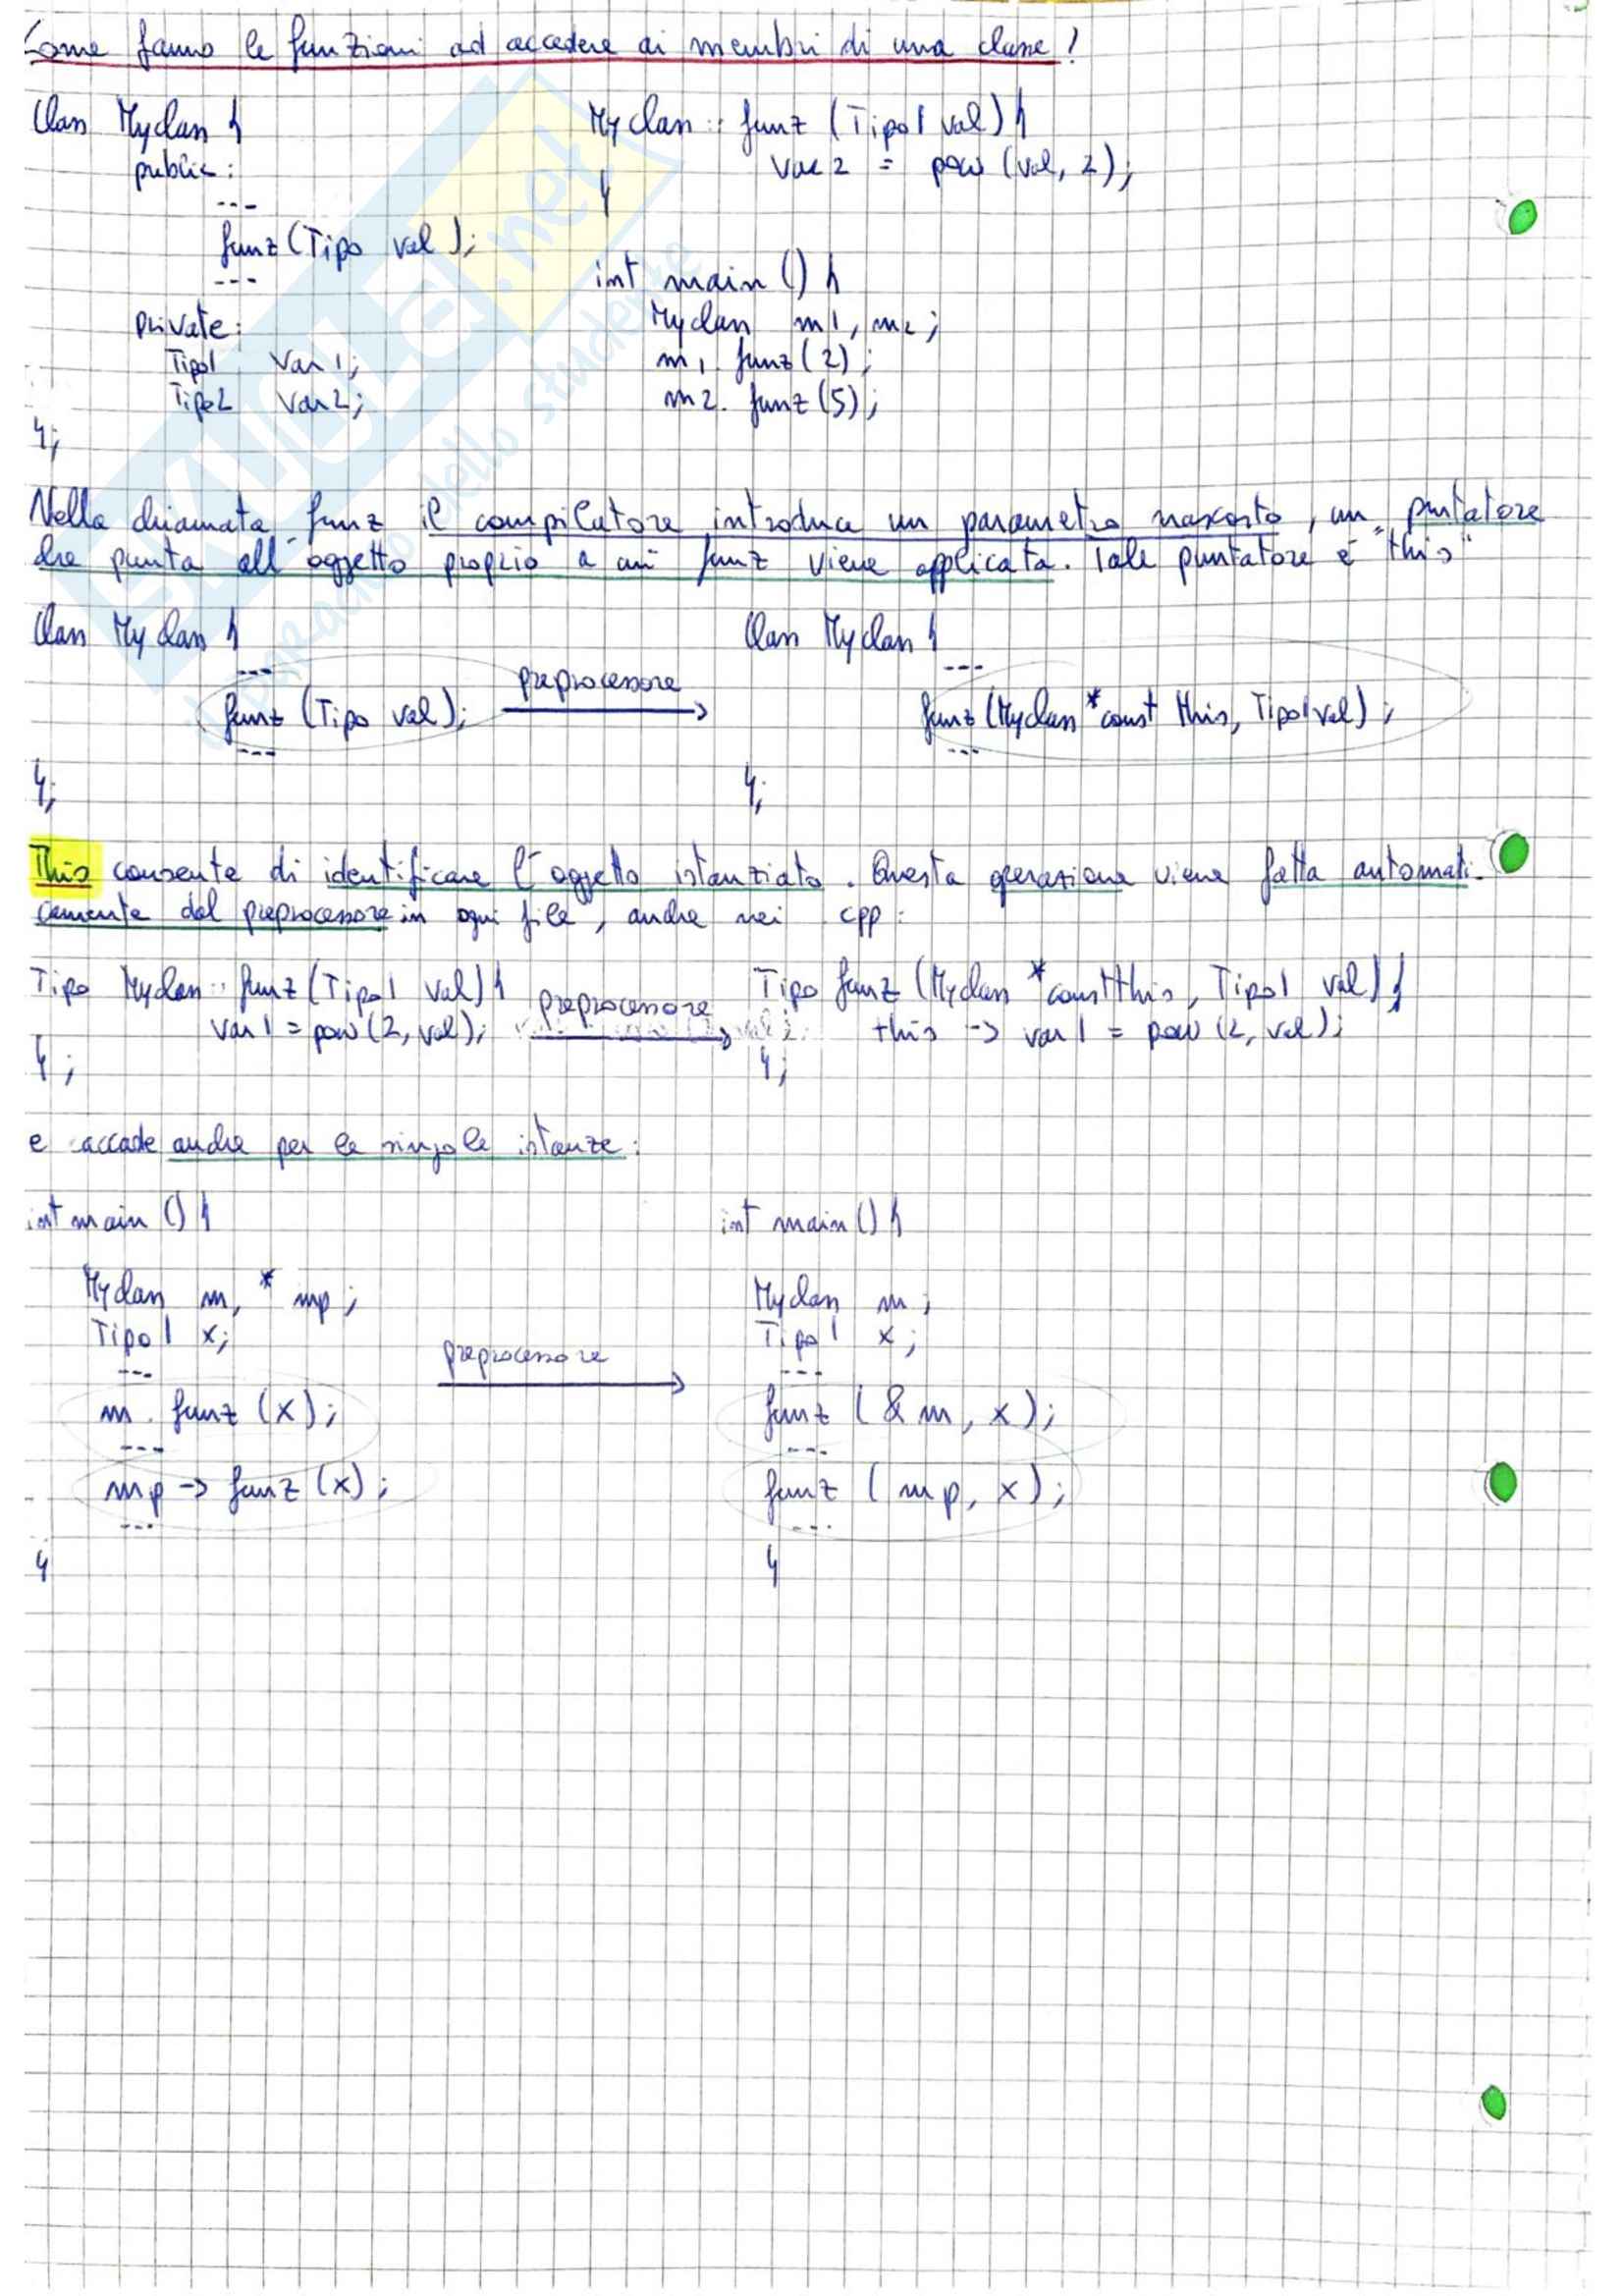 Come fanno le funzioni ad accedere ai membri di una classe?
Class Myclass {
public:
---
funz (Tipo val);
---
private:
Tipo1 Var1;
Tipo2 Var2;
};
Myclass :: funz (Tipo1 val) {
var2 = pow (val, 2);
}
int main () {
Myclass m1, m2;
m1. funz (2);
m2. funz (5);
Nella chiamata funz il compilatore introduce un parametro nascosto, un puntatore
che punta all'oggetto proprio a cui funz viene applicata. Tale puntatore è "this"
Class Myclass {
---
funz (Tipo val);
---
};
preprocessore
Class Myclass {
---
funz (Myclass *const this, Tipo1 val);
---
};
This consente di identificare l'oggetto istanziato. Questa operazione viene fatta automati-
camente dal preprocessore in ogni file, anche nei .cpp:
Tipo Myclass :: funz (Tipo1 val) {
var1 = pow (2, val);
};
preprocessore
Tipo funz (Myclass *const this, Tipo1 val) {
this -> var1 = pow (2, val);
};
e accade anche per le singole istanze:
int main () {
Myclass m, * mp;
Tipo1 x;
---
m. funz (x);
---
mp -> funz (x);
---
}
preprocessore
int main () {
Myclass m;
Tipo1 x;
---
funz (&m, x);
---
funz (mp, x);
---
}
skuola.net
dello studente